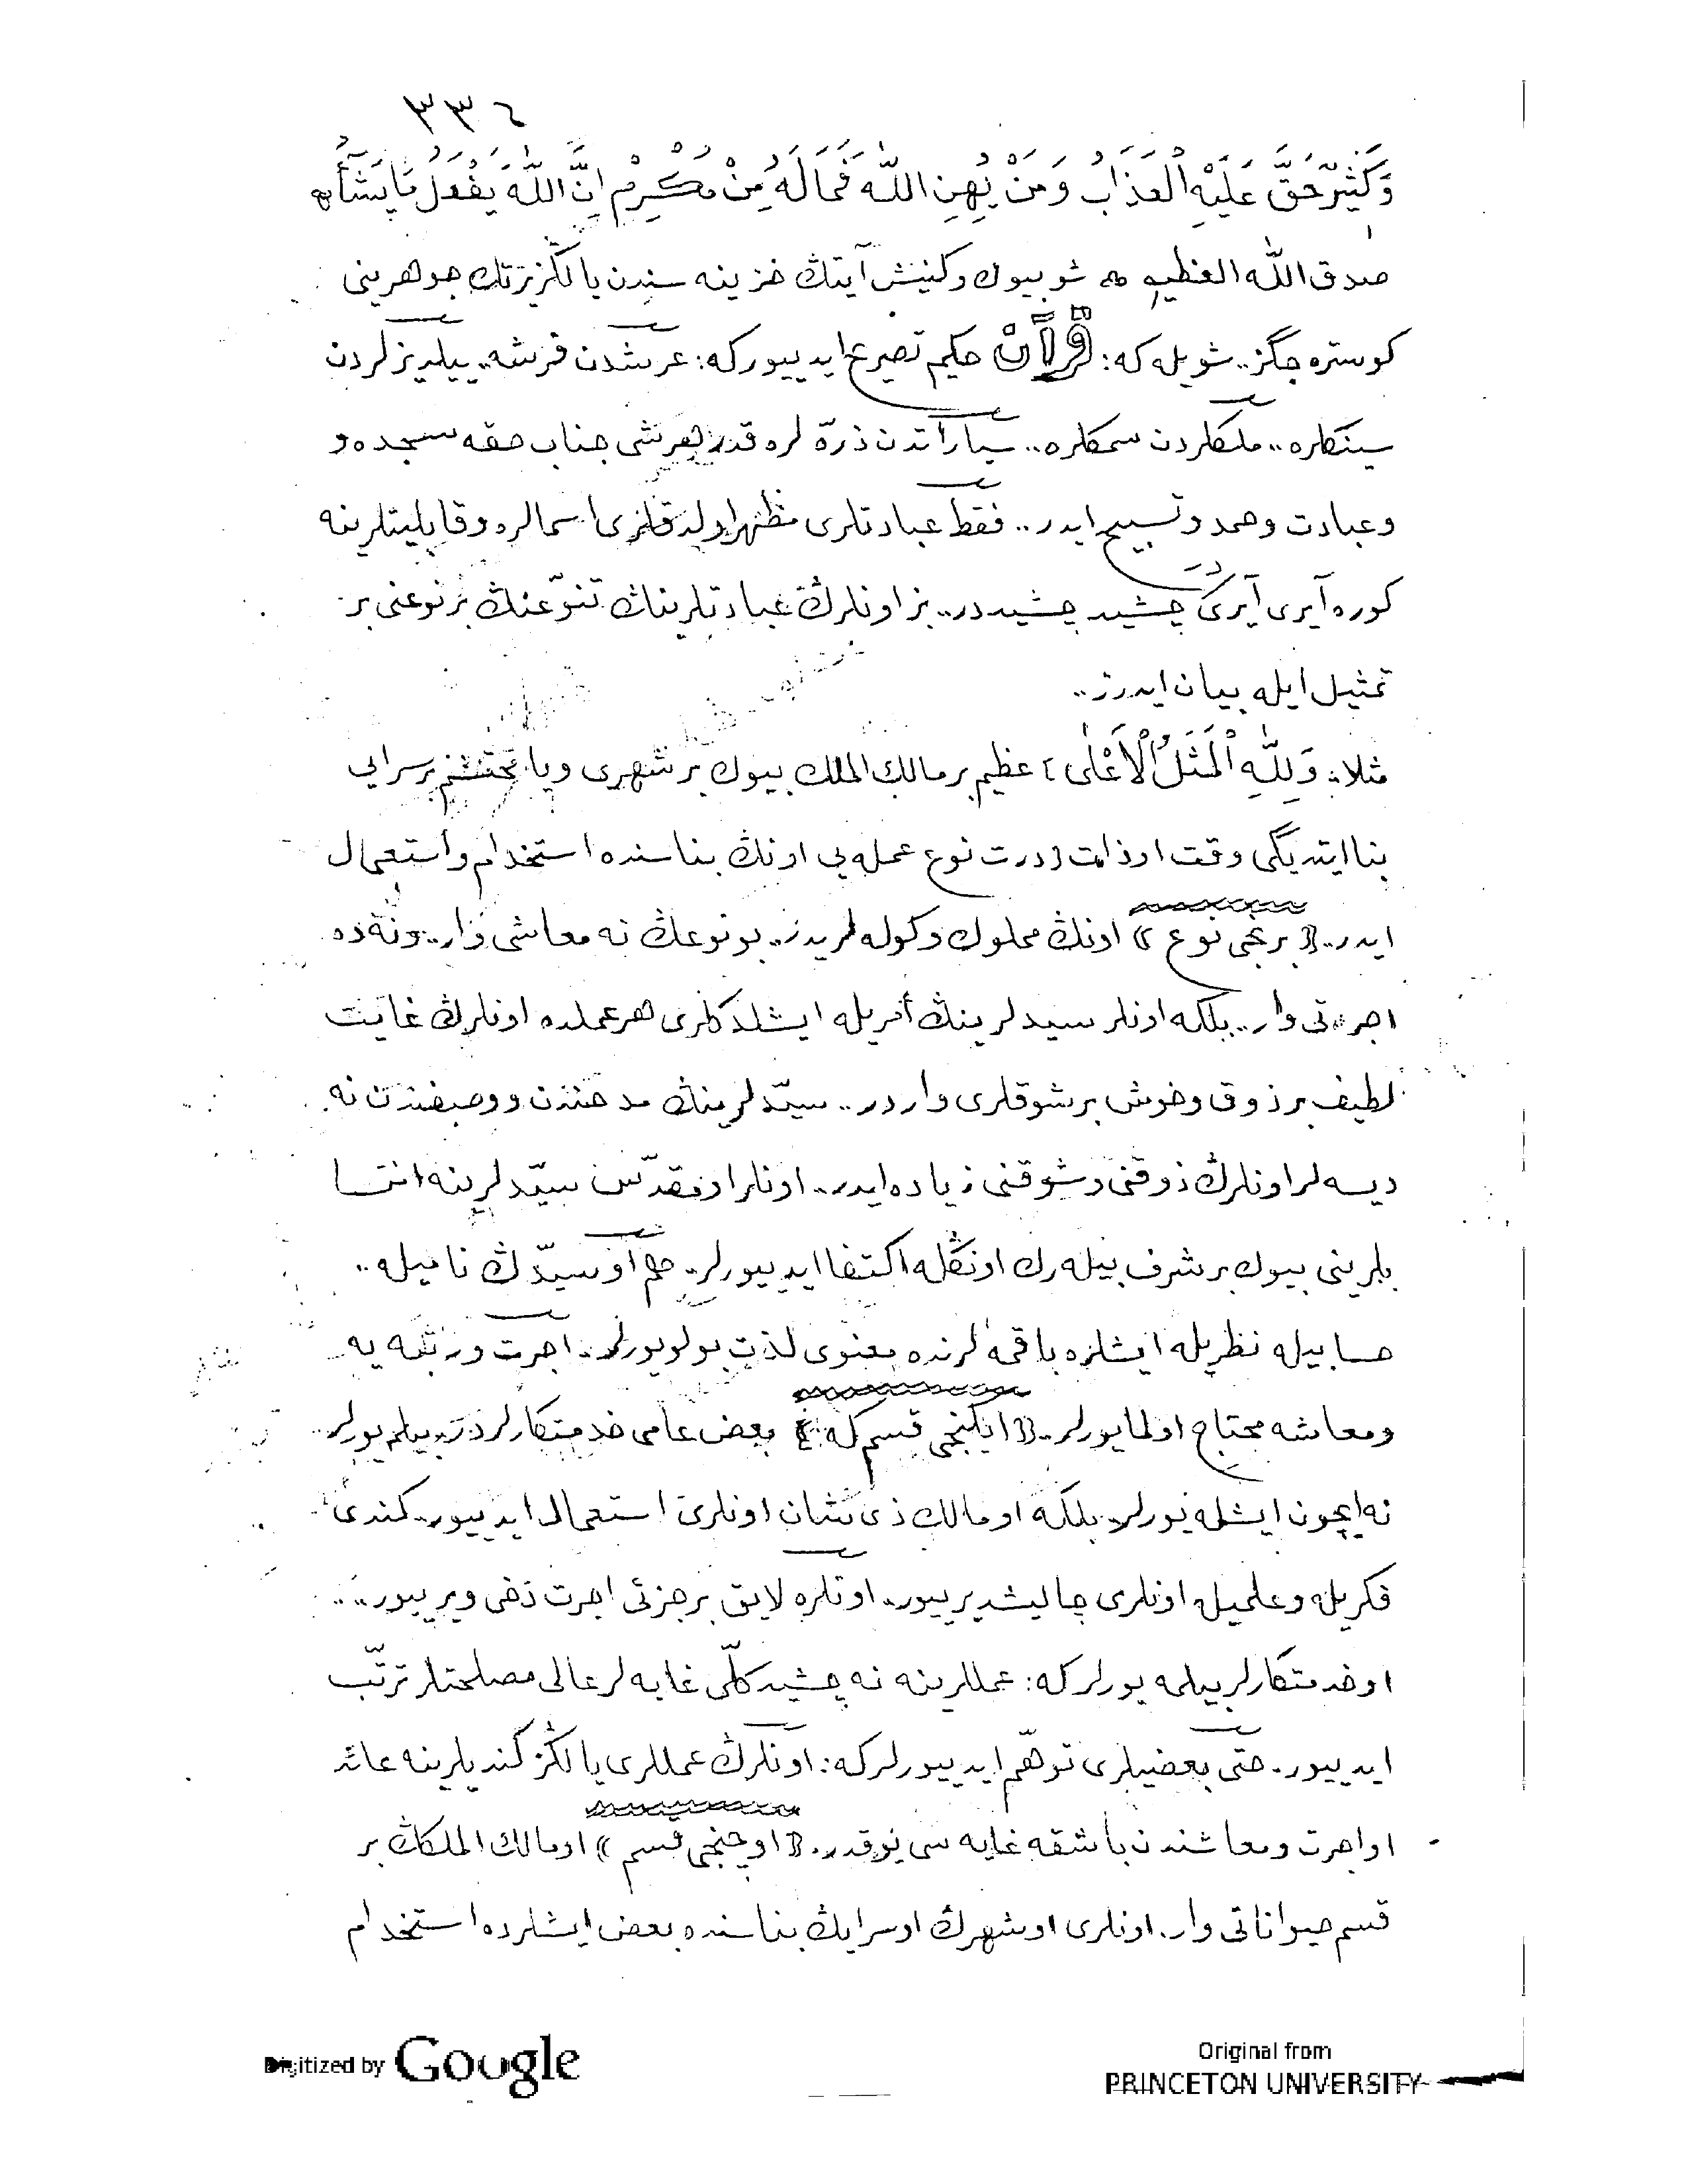 ٣٣٤
وَكَثِيرٌ حَقَّ عَلَيْهِ الْعَذَابُ وَمَنْ يُهِنِ اللّٰهُ فَمَالَهُ مِنْ مُكْرِمٍ اِنَّ اللّٰهَ يَفْعَلُ مَا يَشَآءُ
صدق اللّٰه العظيم شو بيوك وكنيش آيتڭ خزينه سندن يالڭز برتك جوهرينى
كوستره جگز.. شويله كه: قُرْآنْ حكيم تصريح ايدييوركه: عرشدن فرشه.. ييلديزلردن
سينكلره.. ملكلردن سمكلره.. سياراتدن ذرّه لره قدر هرشى جناب حقه سجده و
وعبادت وحمد وتسبيح ايدر.. فقط عبادتلرى مظهر اولدقلرى اسمالره وقابليتلرينه
كوره آيرى آيرى چشيد چشيددر.. بز اونلرڭ عبادتلرينڭ تنوّعنڭ بر نوعنى بر
تمثيل ايله بيان ايدرز..
مثلا: وَلِلّٰهِ الْمَثَلُ الْاَعْلٰى عظيم بر مالك الملك بيوك بر شهرى ويا محتشم بر سرايى
بنا ايتديگى وقت او ذات درت نوع عمله يى اونڭ بناسنده استخدام واستعمال
ايدر.. ﴿برنجى نوع﴾ اونڭ مملوك وكوله لريدر.. بو نوعڭ نه معاشى وار.. ونه ده
اجرتى وار.. بلكه اونلر سيدلرينڭ أمريله ايشلدكلرى هر عملده اونلرڭ غايت
لطيف بر ذوق وخوش بر شوقلرى واردر.. سيّدلرينڭ مدحندن ووصفندن نه
ديسه لر اونلرڭ ذوقنى وشوقنى زياده ايدر.. اونلر او مقدّس سيّدلرينه انتسا
بلرينى بيوك بر شرف بيله رك اونڭله اكتفا ايدييورلر.. هم او سيدّڭ ناميله..
حسابيله نظريله ايشلره باقمه لرنده معنوى لذت بولويورلر.. اجرت ورتبه يه
ومعاشه محتاج اولمايورلر.. ﴿ايكنجى قسم كه﴾ بعض عامى خدمتكارلردر.. بيلميورلر
نه ايچون ايشله يورلر.. بلكه او مالك ذى شان اونلرى استعمال ايدييور.. كندى
فكريله وعلميله اونلرى چاليشديرييور.. اونلره لايق بر جزئى اجرت دخى ويرييور..
او خدمتكارلر بيلمه يورلركه: عمللرينه نه چشيد كلّى غايه لر عالى مصلحتلر ترتّب
ايدييور.. حتى بعضيلرى توهّم ايدييورلركه: اونلرڭ عمللرى يالڭز كنديلرينه عائد
او اجرت ومعاشندن باشقه غايه سى يوقدر.. ﴿اوچنجى قسم﴾ او مالك الملكڭ بر
قسم حيواناتى وار. اونلرى او شهرڭ او سرايڭ بناسنده بعض ايشلرده استخدام
Digitized by Google
Original from
PRINCETON UNIVERSITY